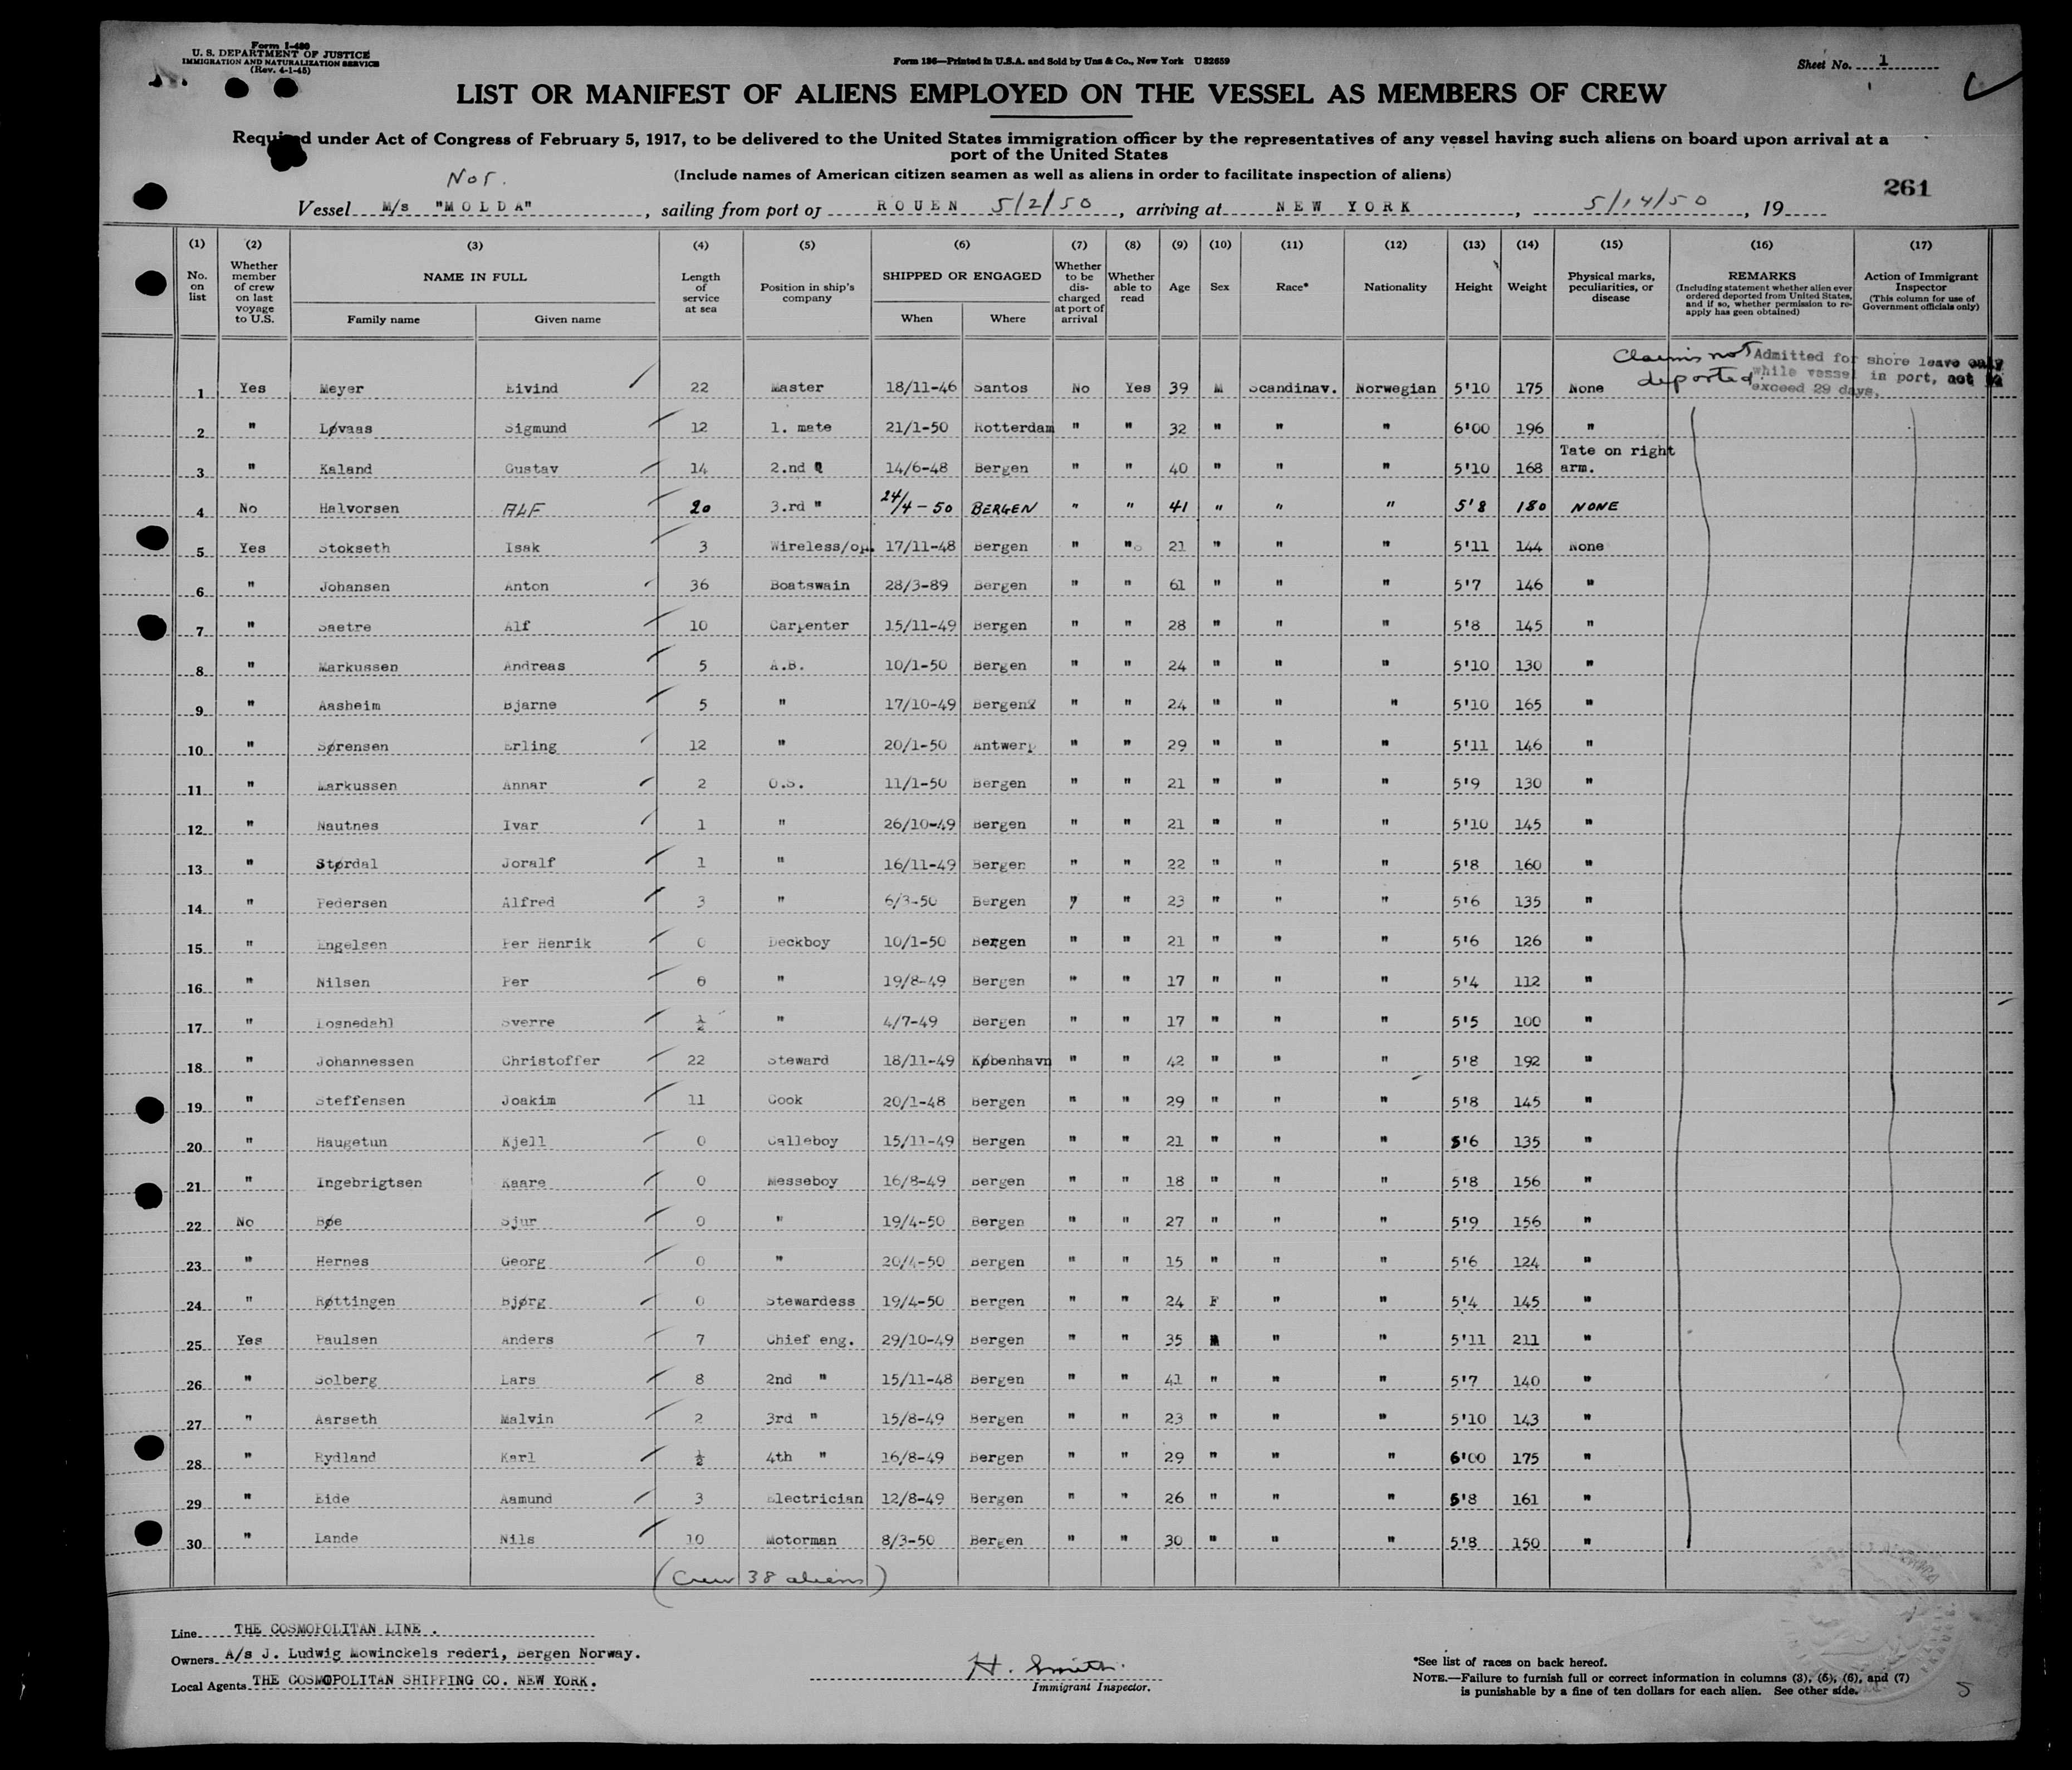 Form I-480
U. S. DEPARTMENT OF JUSTICE
IMMIGRATION AND NATURALIZATION SERVICE
(Rev. 4-1-45)
Form 136—Printed in U.S.A. and Sold by Unz & Co., New York U 32659
Sheet No. 1
LIST OR MANIFEST OF ALIENS EMPLOYED ON THE VESSEL AS MEMBERS OF CREW
Required under Act of Congress of February 5, 1917, to be delivered to the United States immigration officer by the representatives of any vessel having such aliens on board upon arrival at a
port of the United States
(Include names of American citizen seamen as well as aliens in order to facilitate inspection of aliens)
261
Nor.
Vessel M/s "MOLDA", sailing from port of ROUEN 5/2/50, arriving at NEW YORK, 5/14/50, 19
(1) (2) (3) (4) (5) (6) (7) (8) (9) (10) (11) (12) (13) (14) (15) (16) (17)
No. on list
Whether member of crew on last voyage to U.S.
NAME IN FULL
Family name Given name
Length of service at sea
Position in ship's company
SHIPPED OR ENGAGED
When Where
Whether to be discharged at port of arrival
Whether able to read
Age
Sex
Race*
Nationality
Height
Weight
Physical marks, peculiarities, or disease
REMARKS
(Including statement whether alien ever ordered deported from United States, and if so, whether permission to re-apply has geen obtained)
Action of Immigrant Inspector
(This column for use of Government officials only)
Claims not deported
Admitted for shore leave only
while vessel in port, not to
exceed 29 days.
1 Yes Meyer Eivind 22 Master 18/11-46 Santos No Yes 39 M Scandinav. Norwegian 5'10 175 None
2 " Løvaas Sigmund 12 1. mate 21/1-50 Rotterdam " " 32 " " " 6'00 196 "
3 " Kaland Gustav 14 2.nd " 14/6-48 Bergen " " 40 " " " 5'10 168 Tate on right arm.
4 No Halvorsen ALF 20 3.rd " 24/4-50 BERGEN " " 41 " " " 5'8 180 NONE
5 Yes Stokseth Isak 3 Wireless/op. 17/11-48 Bergen " " 21 " " " 5'11 144 None
6 " Johansen Anton 36 Boatswain 28/3-89 Bergen " " 61 " " " 5'7 146 "
7 " Saetre Alf 10 Carpenter 15/11-49 Bergen " " 28 " " " 5'8 145 "
8 " Markussen Andreas 5 A.B. 10/1-50 Bergen " " 24 " " " 5'10 130 "
9 " Aasheim Bjarne 5 " 17/10-49 Bergen " " 24 " " " 5'10 165 "
10 " Sørensen Erling 12 " 20/1-50 Antwerp " " 29 " " " 5'11 146 "
11 " Markussen Annar 2 O.S. 11/1-50 Bergen " " 21 " " " 5'9 130 "
12 " Nautnes Ivar 1 " 26/10-49 Bergen " " 21 " " " 5'10 145 "
13 " Størdal Joralf 1 " 16/11-49 Bergen " " 22 " " " 5'8 160 "
14 " Pedersen Alfred 3 " 6/3-50 Bergen " " 23 " " " 5'6 135 "
15 " Engelsen Per Henrik 0 Deckboy 10/1-50 Bergen " " 21 " " " 5'6 126 "
16 " Nilsen Per 0 " 19/8-49 Bergen " " 17 " " " 5'4 112 "
17 " Losnedahl Sverre ½ " 4/7-49 Bergen " " 17 " " " 5'5 100 "
18 " Johannessen Christoffer 22 Steward 18/11-49 København " " 42 " " " 5'8 192 "
19 " Steffensen Joakim 11 Cook 20/1-48 Bergen " " 29 " " " 5'8 145 "
20 " Haugetun Kjell 0 Galleboy 15/11-49 Bergen " " 21 " " " 5'6 135 "
21 " Ingebrigtsen Kaare 0 Messeboy 16/8-49 Bergen " " 18 " " " 5'8 156 "
22 No Bøe Sjur 0 " 19/4-50 Bergen " " 27 " " " 5'9 156 "
23 " Hernes Georg 0 " 20/4-50 Bergen " " 15 " " " 5'6 124 "
24 " Røttingen Bjørg 0 Stewardess 19/4-50 Bergen " " 24 F " " 5'4 145 "
25 Yes Paulsen Anders 7 Chief eng. 29/10-49 Bergen " " 35 M " " 5'11 211 "
26 " Solberg Lars 8 2nd " 15/11-48 Bergen " " 41 " " " 5'7 140 "
27 " Aarseth Malvin 2 3rd " 15/8-49 Bergen " " 23 " " " 5'10 143 "
28 " Rydland Karl ½ 4th " 16/8-49 Bergen " " 29 " " " 6'00 175 "
29 " Eide Aamund 3 Electrician 12/8-49 Bergen " " 26 " " " 5'8 161 "
30 " Lande Nils 10 Motorman 8/3-50 Bergen " " 30 " " " 5'8 150 "
(Crew 38 aliens)
Line THE COSMOPOLITAN LINE.
Owners A/s J. Ludwig Mowinckels rederi, Bergen Norway.
Local Agents THE COSMOPOLITAN SHIPPING CO. NEW YORK.
H. Smith.
Immigrant Inspector.
*See list of races on back hereof.
NOTE.—Failure to furnish full or correct information in columns (3), (5), (6), and (7)
is punishable by a fine of ten dollars for each alien. See other side.
5